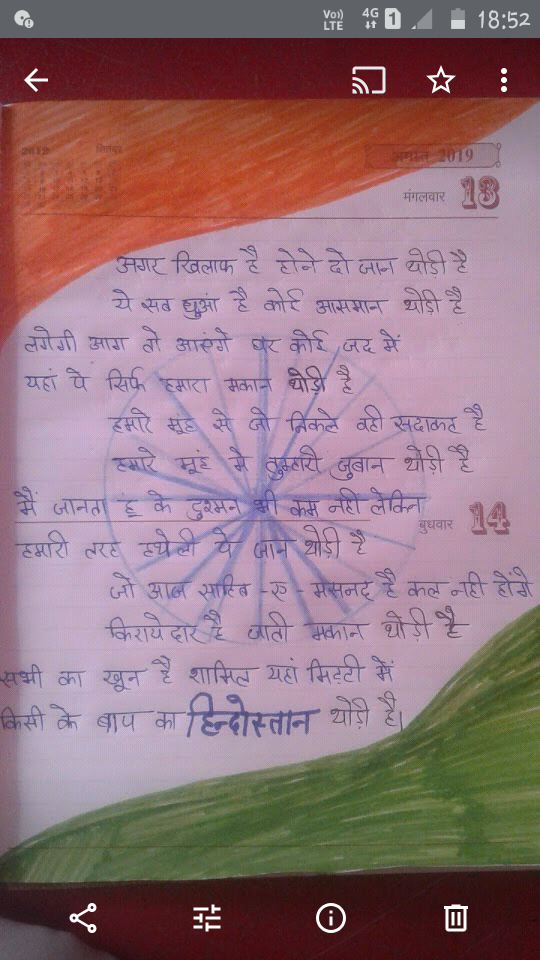 Vo)) LTE 4G 1 18:52
2019
मंगलवार 13
अगर खिलाफ है होने दो जान थोड़ी है
ये सब धुआं है कोई आसमान थोड़ी है
लगेगी आग तो आएंगे घर कोई जद में
यहां पे सिर्फ हमारा मकान थोड़ी है
हमारे मूंह से जो निकले वही सदाकत है
हमारे मूंह मे तुम्हारी जुबान थोड़ी है
मैं जानता हूं के दुश्मन भी कम नही लेकिन
बुधवार 14
हमारी तरह हथेली पे जान थोड़ी है
जो आज साहिब -ए- मसनद है कल नही होंगे
किरायेदार है जाती मकान थोड़ी है
सभी का खून है शामिल यहां मिट्टी में
किसी के बाप का हिन्दोस्तान थोड़ी है।